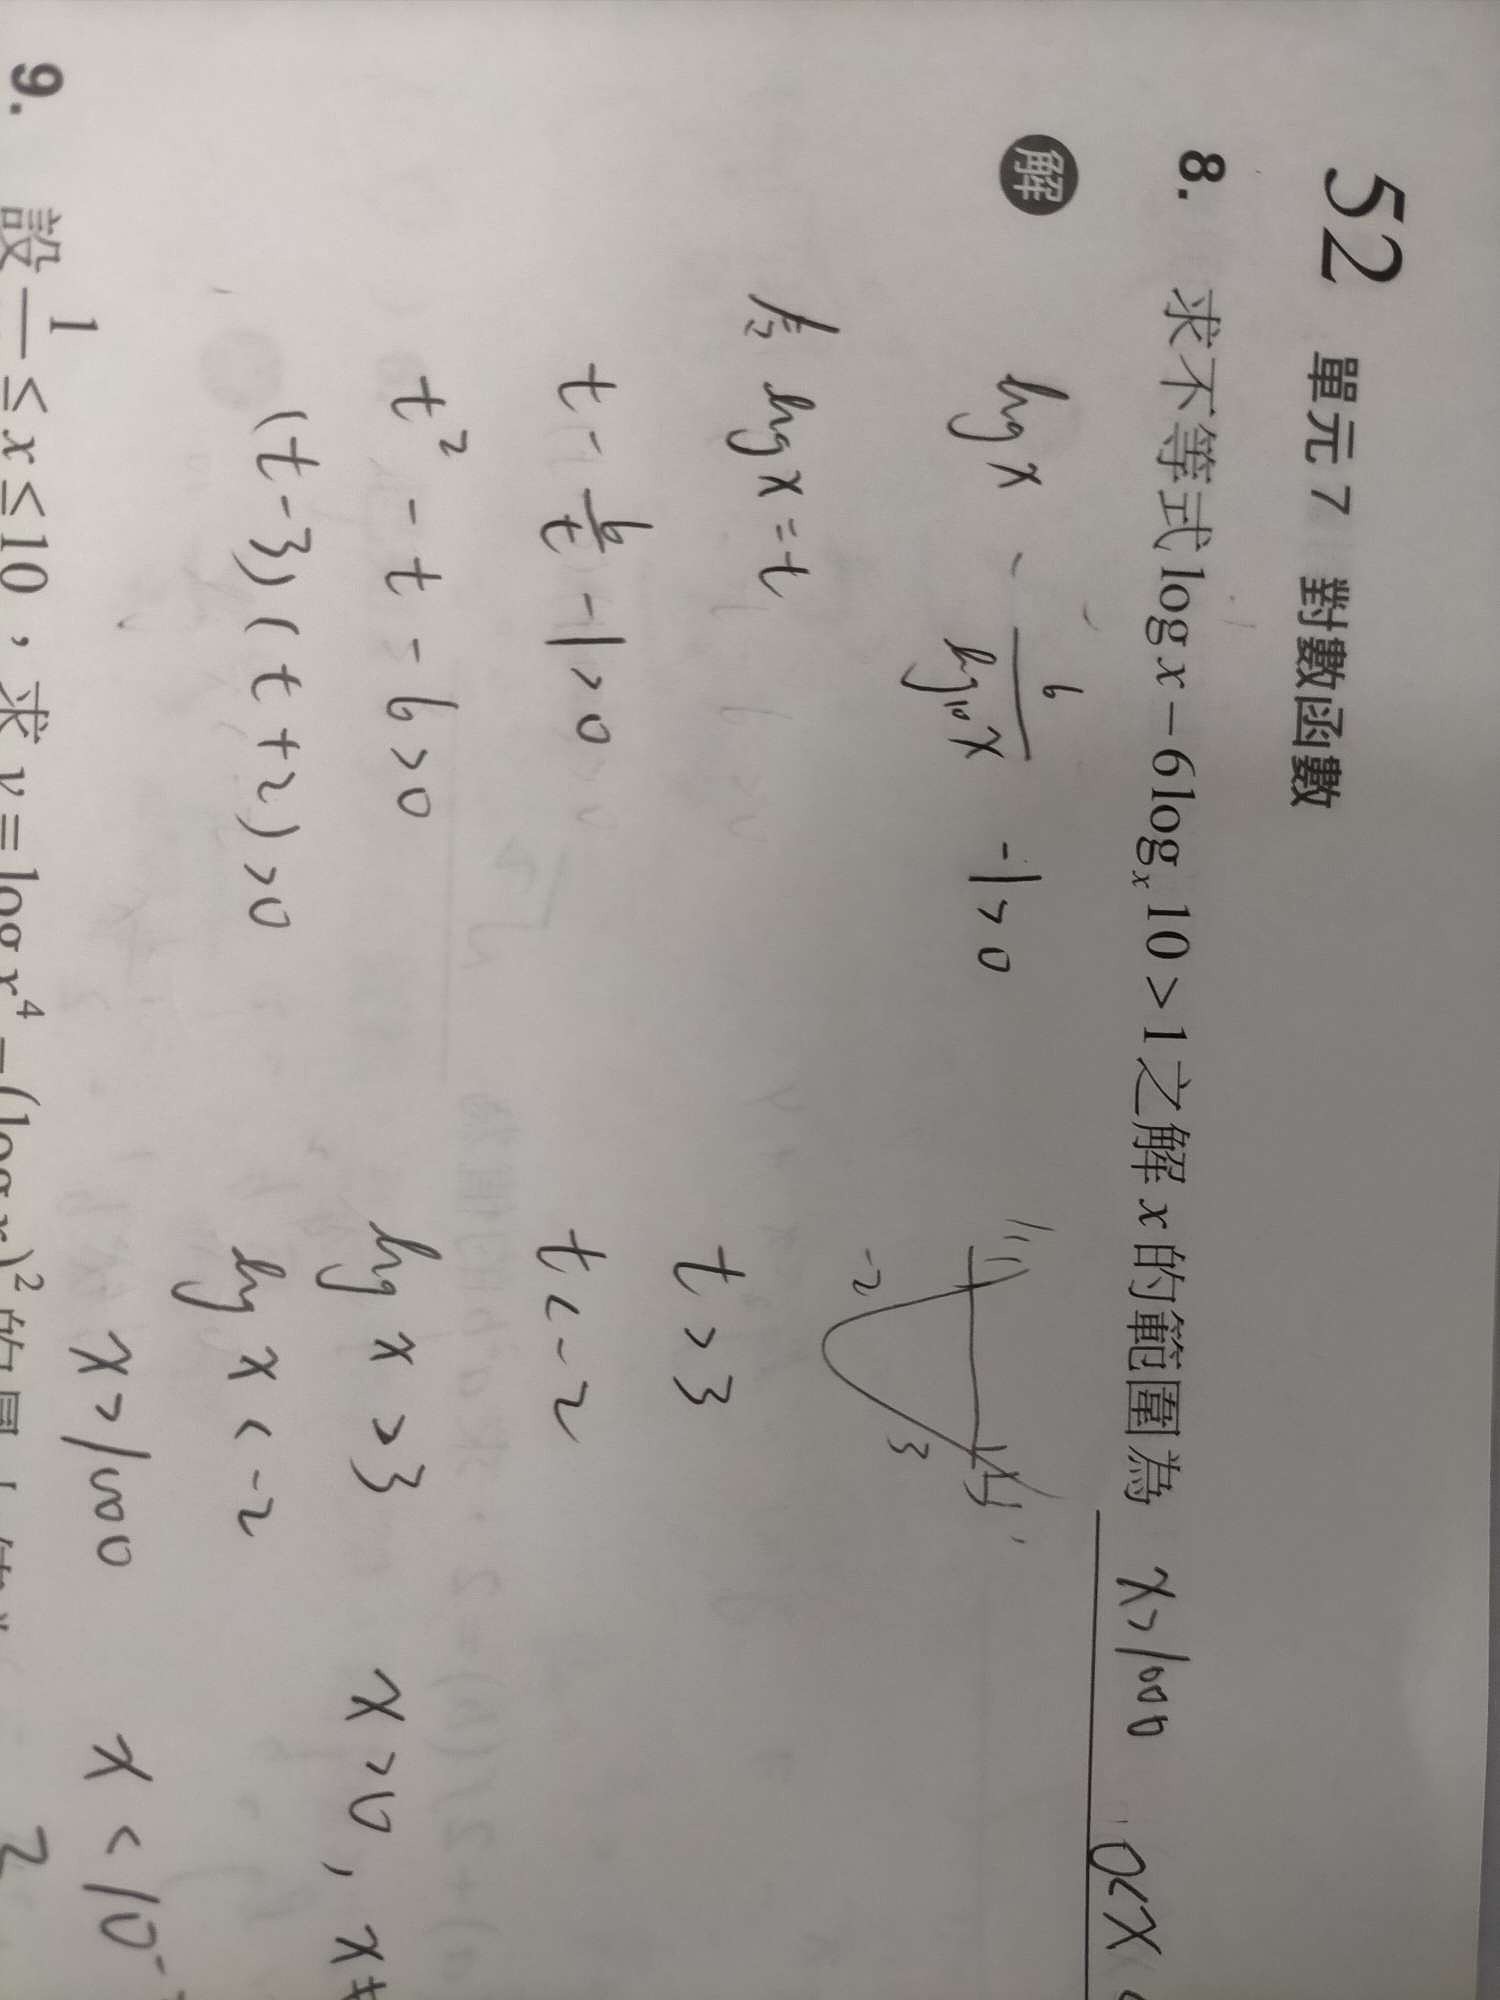 52 單元 7 對數函數
8. 求不等式 log x − 6 log_x 10 > 1 之解 x 的範圍為 x>1000 0<x
解
log x - 6/log₁₀x -1>0
log x = t
t - 6/t -1>0
t² - t - 6>0
(t-3)(t+2)>0
-2 3
t>3
t<-2
log x >3
log x < -2
x>1000
x>0, x≠
x<10⁻
9. 設 1 ≤ x ≤ 10，求 y = log x⁴ − (log x)² 的